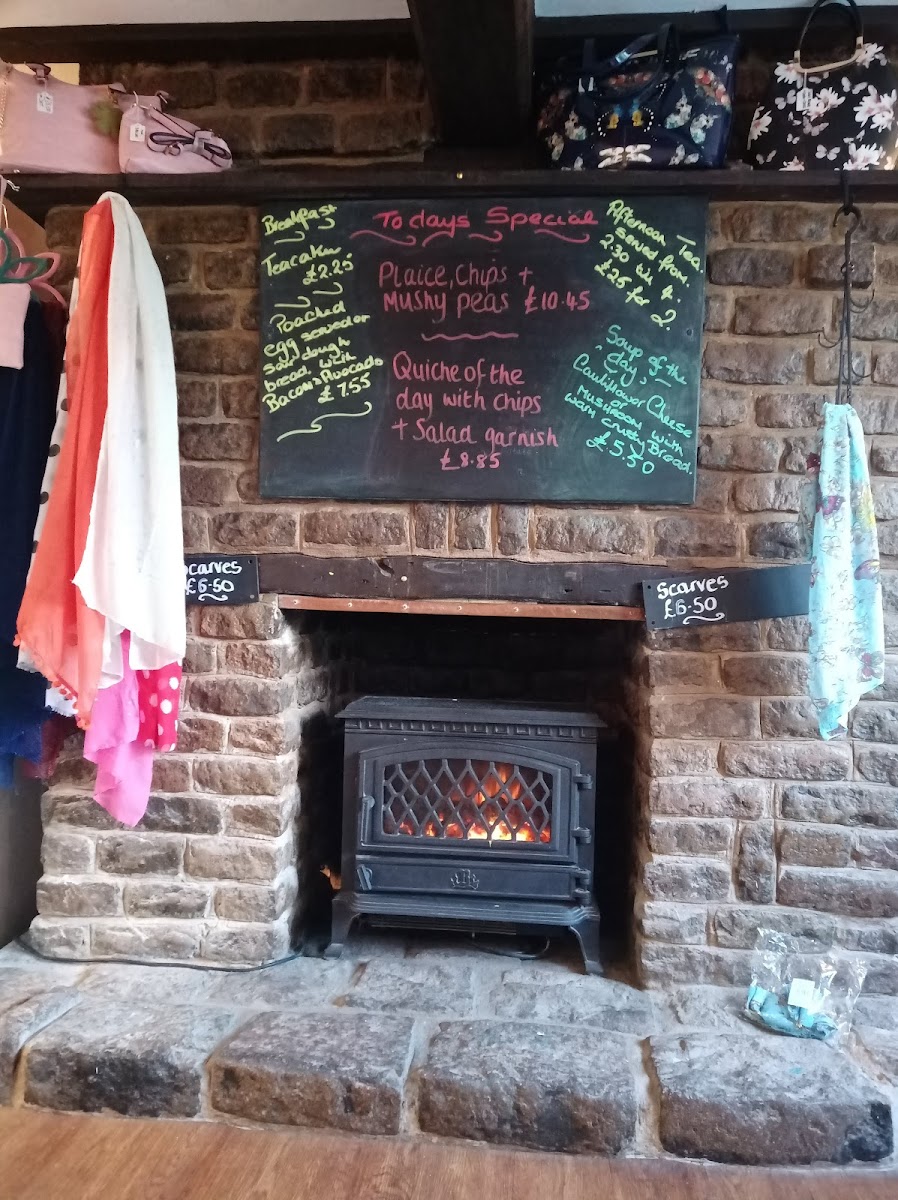 Breakfast
Teacake
£2.25
Poached
egg served on
sour dough
bread with
Bacon & Avocado
£7.55
Todays Special
Plaice, Chips +
Mushy peas £10.45
Quiche of the
day with chips
+ Salad garnish
£8.85
Afternoon Tea
served from
2.30 till 4.
£25 for
2.
Soup of the
day,
Cauliflower Cheese
or
Mushroom with
warm crusty Bread.
£5.50
Scarves
£6.50
Scarves
£6.50